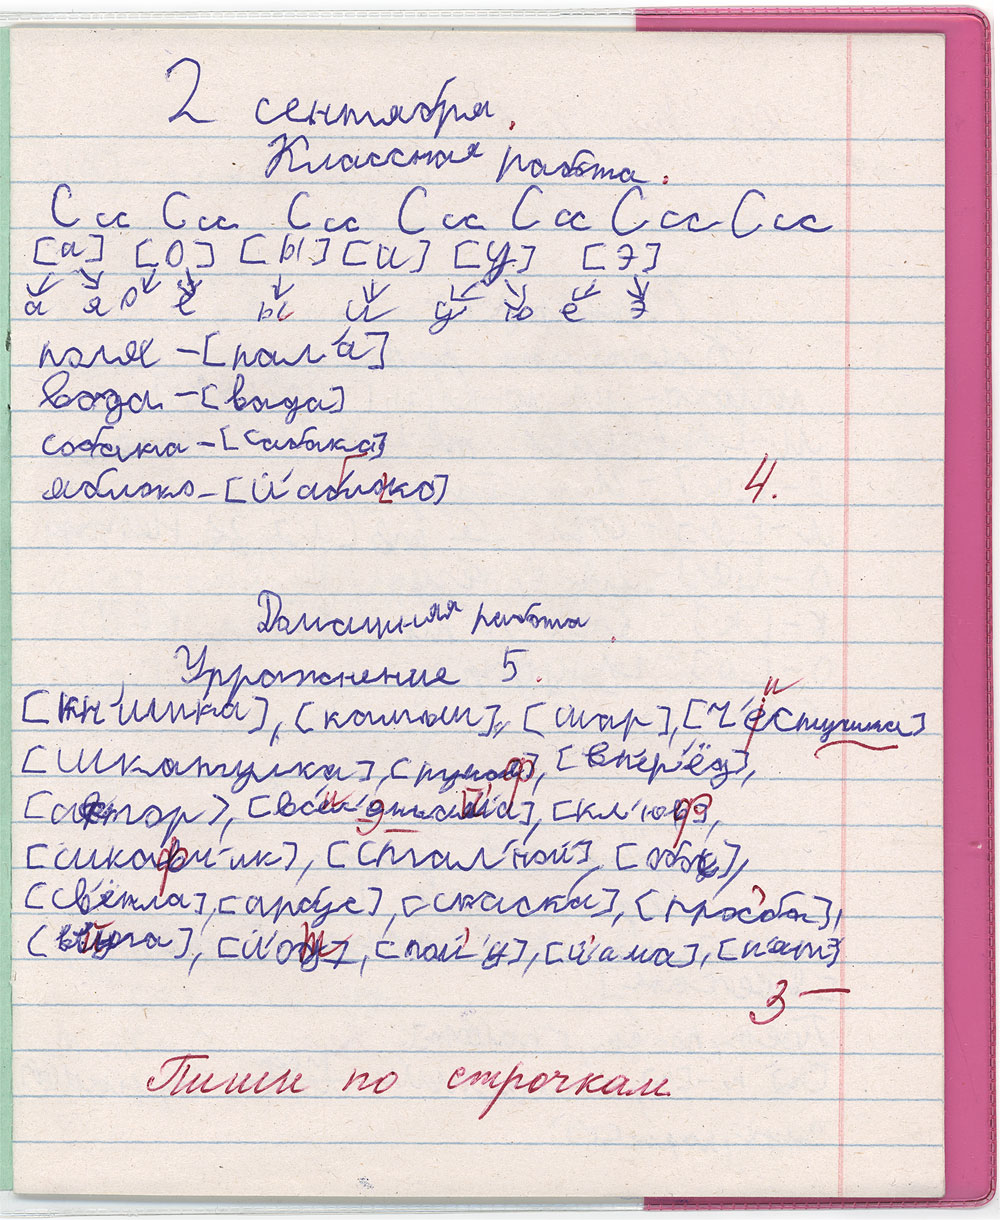 2 сентября.
Классная работа.
Ссс Ссс Ссс Ссс Ссс Ссс Ссс
[а] [о] [ы] [и] [у] [э]
а я о ё ы и у ю е э
поля - [пал'а]
вода - [вада]
собака - [сабака]
яблоко - [й'аблоко]
4.
Домашняя работа
Упражнение 5.
[кн'ишка], [камыш], [шар], [ч'естушка]
[шкатулка], [вп'ер'ёд],
[автор],
[шкаф'ик], [стал'ной],
[св'екла], [арбус], [скаска], [прос'ба],
[пой'у], [й'ама], [п'ат']
3-
Пиши по строчкам.